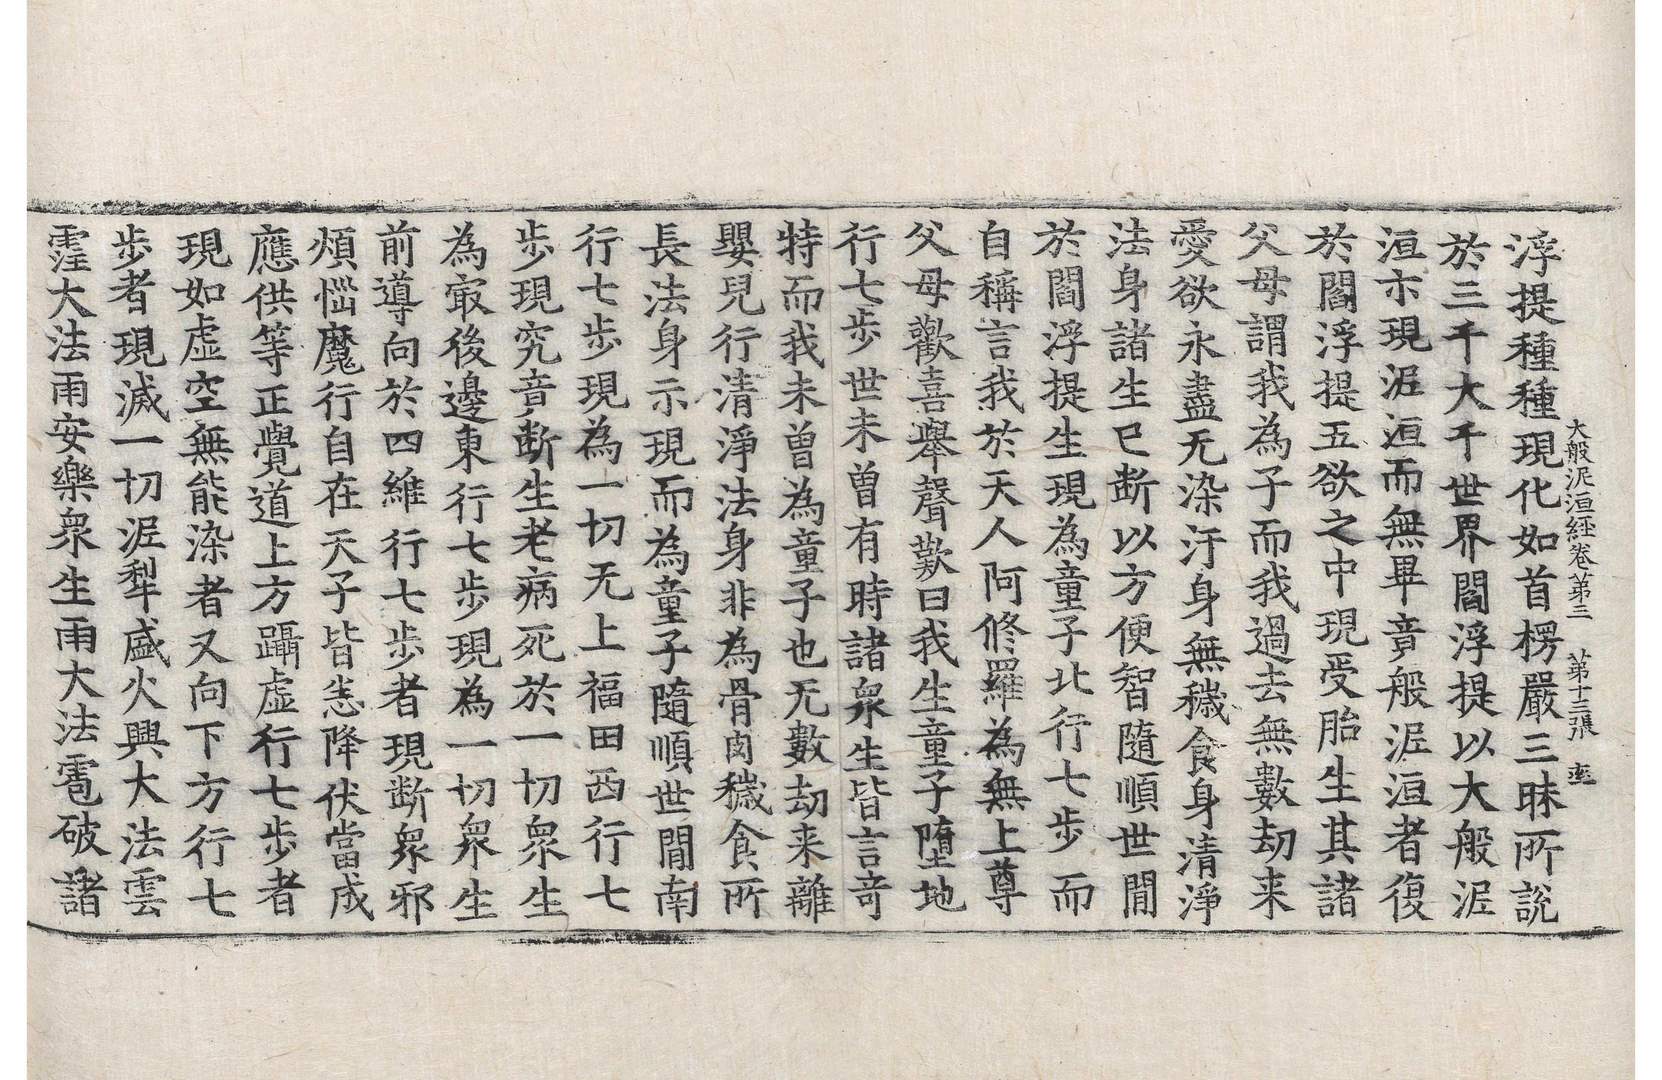 大般泥洹經卷第三　第十三張　率
浮提種種現化如首楞嚴三昧所說
於三千大千世界閻浮提以大般泥
洹亦現泥洹而無畢竟般泥洹者復
於閻浮提五欲之中現受胎生其諸
父母謂我為子而我過去無數劫来
愛欲永盡无染汙身無穢食身清淨
法身諸生已断以方便智隨順世間
於閻浮提生現為童子北行七步而
自稱言我於天人阿修羅為無上尊
父母歡喜舉聲歎曰我生童子墮地
行七步世未曾有時諸衆生皆言竒
特而我未曾為童子也无數劫来離
嬰兒行清淨法身非為骨肉穢食所
長法身示現而為童子隨順世間南
行七步現為一切无上福田西行七
步現究竟断生老病死於一切衆生
為㝡後邊東行七步現為一切衆生
前導向於四維行七步者現断衆邪
煩惱魔行自在天子皆悉降伏當成
應供等正覺道上方躡虛行七步者
現如虛空無能染者又向下方行七
步者現滅一切泥犁盛火興大法雲
霔大法雨安樂衆生雨大法雹破諸